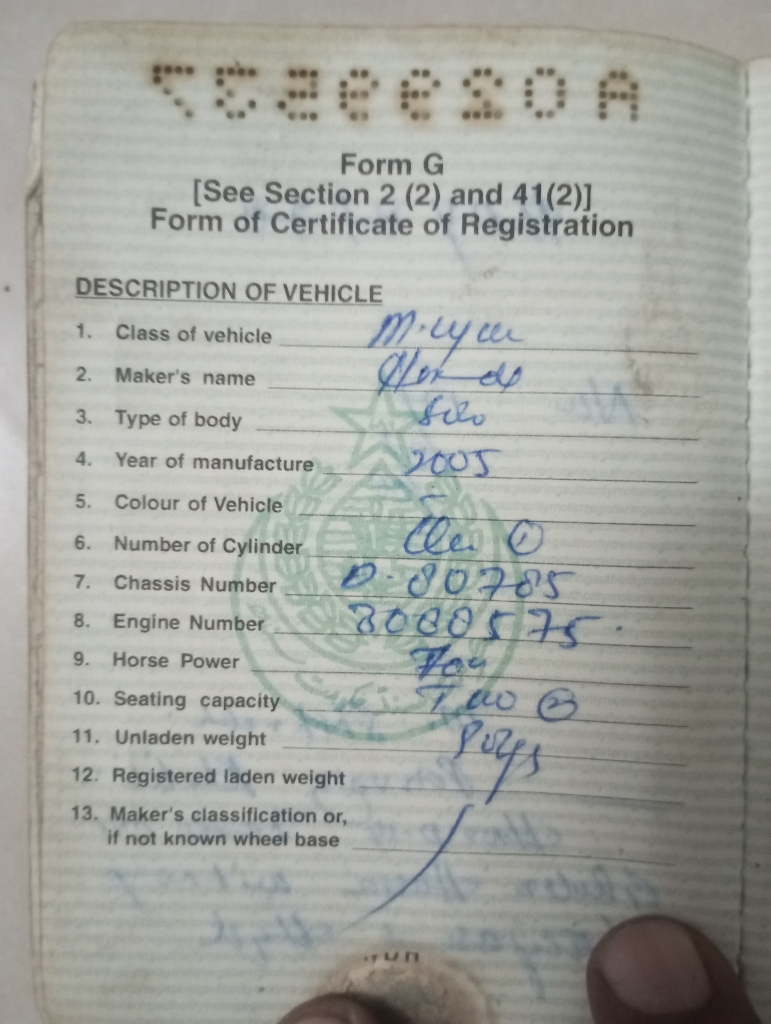 Form G
[See Section 2 (2) and 41(2)]
Form of Certificate of Registration
DESCRIPTION OF VEHICLE
1. Class of vehicle M. cycle
2. Maker's name Honda
3. Type of body Solo
4. Year of manufacture 2005
5. Colour of Vehicle -
6. Number of Cylinder One ①
7. Chassis Number D-80785
8. Engine Number
9. Horse Power 70cc
10. Seating capacity Two ②
11. Unladen weight
12. Registered laden weight
13. Maker's classification or,
if not known wheel base